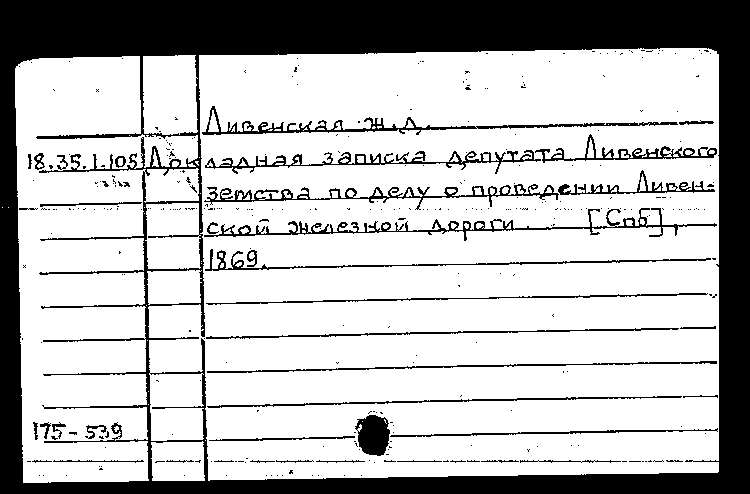 Ливенская ж.д.
18.35.1.105 Докладная записка депутата Ливенского
земства по делу о проведении Ливен=
ской железной дороги. [Спб],
1869.
175-539